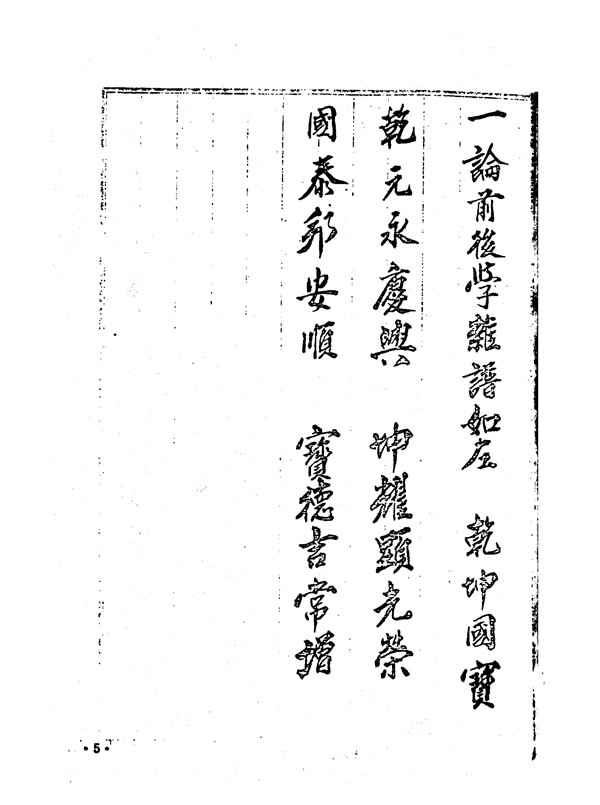 一論前後學雜譜如左 乾坤國寶
乾元永慶興 坤耀顯光榮
國泰邦安順 寶德吉常增
•5•